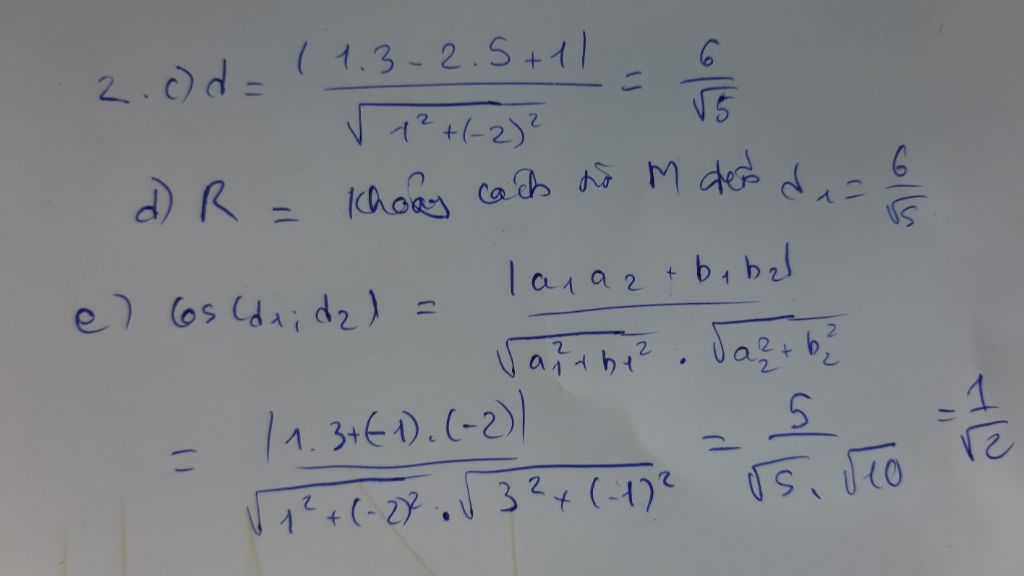 2. c) d = |1.3 - 2.5 + 1| / √(1² + (-2)²) = 6/√5
d) R = Khoảng cách từ M đến d₁ = 6/√5
e) Cos(d₁; d₂) = |a₁a₂ + b₁b₂| / √(a₁² + b₁²) . √(a₂² + b₂²)
= |1.3+(-1).(-2)| / √(1² + (-2)²) . √(3² + (-1)²) = 5/√5.√10 = 1/√2